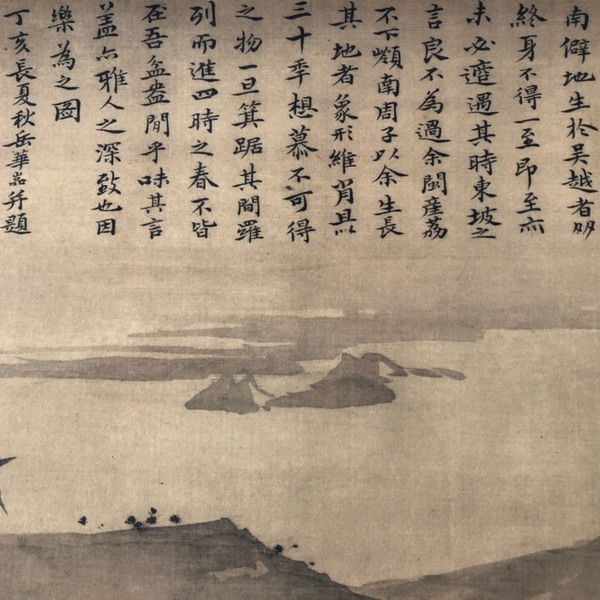 南僻地生於吳越者
終身不得一至即至亦
未必適遇其時東坡之
言良不為過余閩產荔
不下嶺南周子以余生長
其地者象形維肖且以
三十秊想慕不可得
之物一旦箕踞其間羅
列而進四時之春不皆
在吾盆盎閒乎味其言
蓋亦雅人之深致也因
樂為之圖
丁亥長夏秋岳華嵒并題